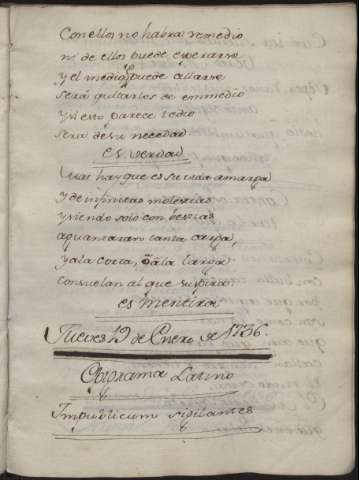 Con ellos no habra remedio
ni de ellos puede esperarse
y el medio q puede allarse
será quitarlos de enmedio
y si esto parece tedio
sera de su necedad
es verdad
Mas hay que es su vida amarga
y de infinitas molestias
y siendo solo con bestias
aguantaran tanta carga,
y ala corta, ò à la larga
consuelan al que suspira.
es mentira
Jueves 19 de Enero de 1736.
Epigrama Latino
In publicum vigilantes